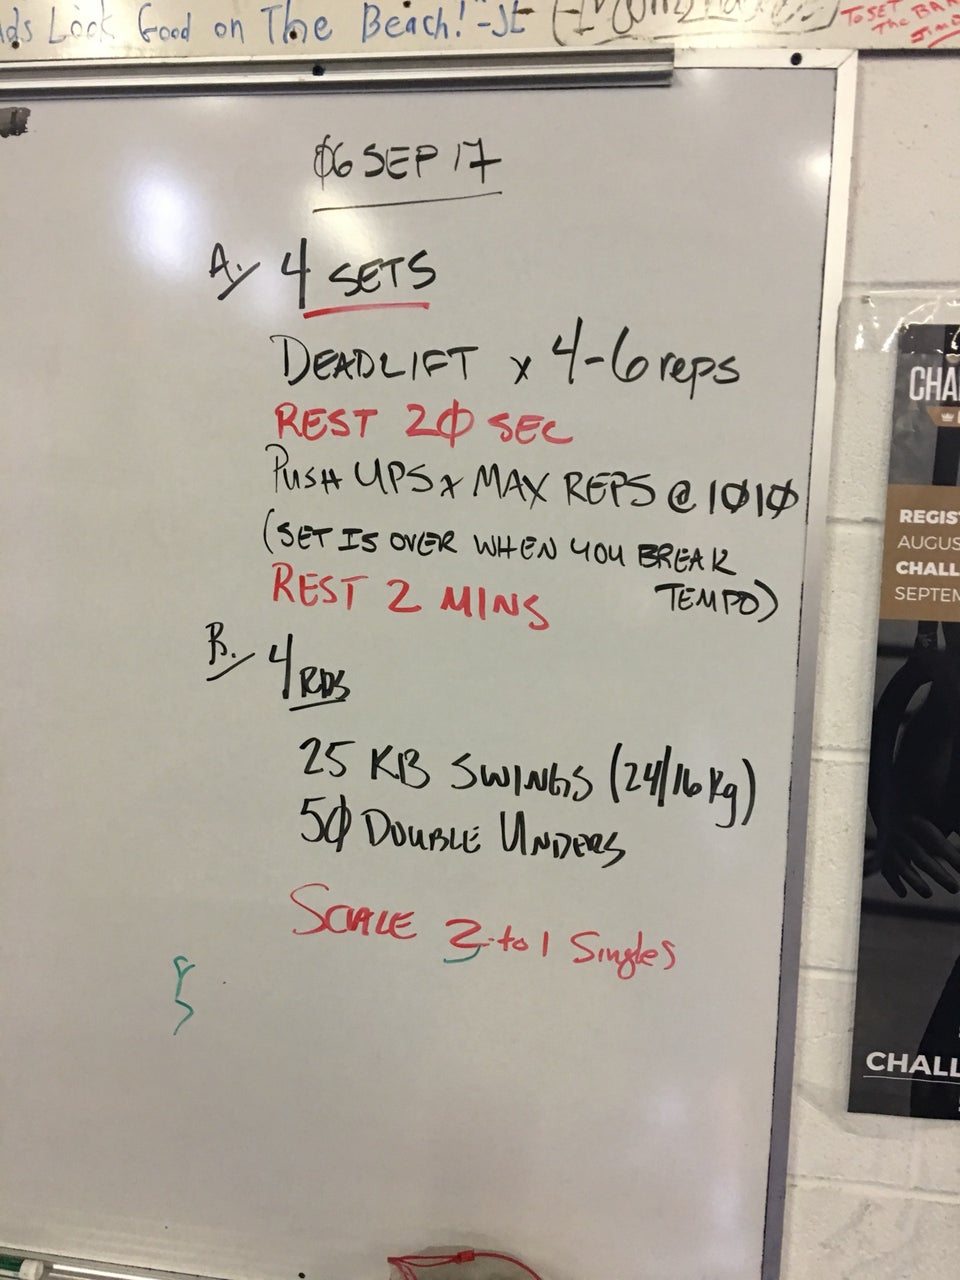 Look Good on The Beach!"-JE
To SET
The BAR
06 SEP 17
A. 4 SETS
DEADLIFT x 4-6 reps
REST 20 SEC
PUSH UPS x MAX REPS @ 1010
(SET IS OVER WHEN YOU BREAK
TEMPO)
REST 2 MINS
B. 4 RDS
25 KB SWINGS (24/16 Kg)
50 DOUBLE UNDERS
SCALE 3-to 1 Singles
CHA
REGIS
AUGUS
CHALL
SEPTEM
CHALL